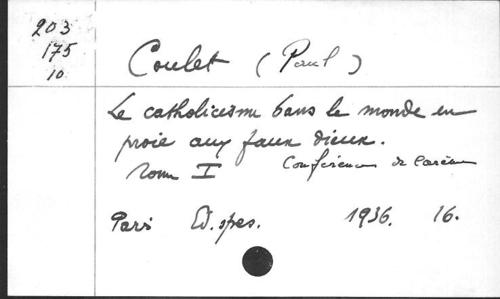 203
175
10
Coulet (Paul)
Le catholicisme dans le monde en
proie aux faux dieux.
Tome I Conférences de Carême
Paris Ed. spes. 1936. 16.